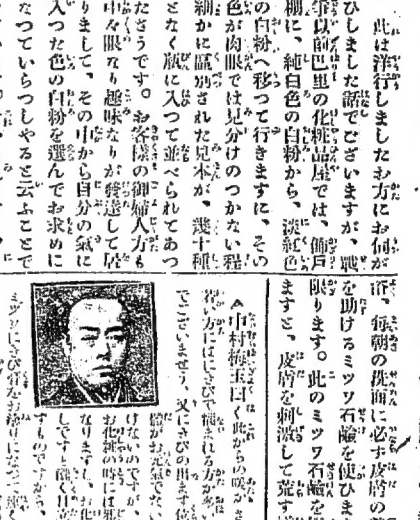 此は洋行しましたお方にお伺が
ひしました話でございますが、戰
爭以前巴里の化粧品屋では、飾戸
棚に、純白色の白粉から、淡紅色
の白粉へ移つて行きますに、その
色が肉眼では見分けのつかない程
細かに區別された見本が、幾十種
となく瓶に入つて並べられてあつ
たさうです。お客様の御婦人方も
中々眼なり趣味なりが發達して居
りまして、その中から自分の氣に
入つた色の白粉を選んでお求めに
なつていらつしやると云ふことで
浴、每朝の洗面に必ず皮膚の
を助けるミツワ石鹼を使ひま
限ります。此のミツワ石鹼を
ますと、皮膚を刺激して荒す
中村梅玉曰く此からの
若い方にはにきびで惱まれる方が多い
でございませう、又にきびの出ます位
けないのですが、
お化粧の時には邪
なりますし、お化